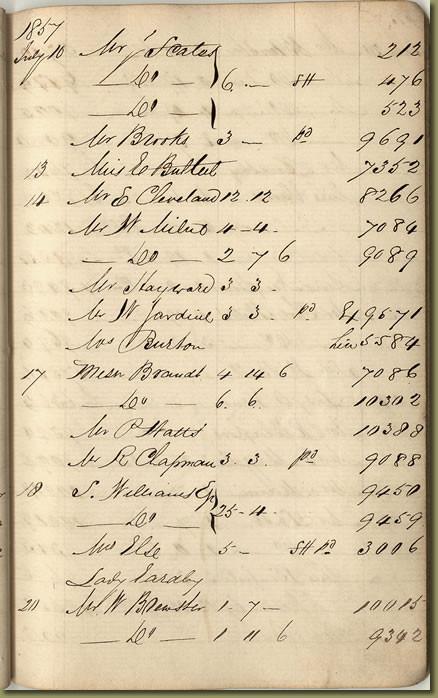 1857
July 10 Mr J Scates 212
— Do — 6 — SH 476
— Do — 523
Mr Brooks 3 — pd 9691
13 Miss E 7352
14 Mr E Cleveland 12 . 12 8266
Mr W 4 - 4 - 7084
— Do 2 7 6 9089
Mr Hayward 3 3 -
Mr W Jardine 3 3 . pd 9571
Mrs Burton 5584
17 Messr Brandt 4 14 6 7086
— Do — 6 . 6 . 10302
Mr P Watts 10388
Mr R Chapman 3 . 3 . pd 9088
18 S. Williams Esq 9450
— Do — 25 - 4 - 9459
Mrs Else 5 — SH pd 3006
Lady Eardley
20 Mr W Brewster 1 - 7 — 10015
— Do — 1 11 6 9342